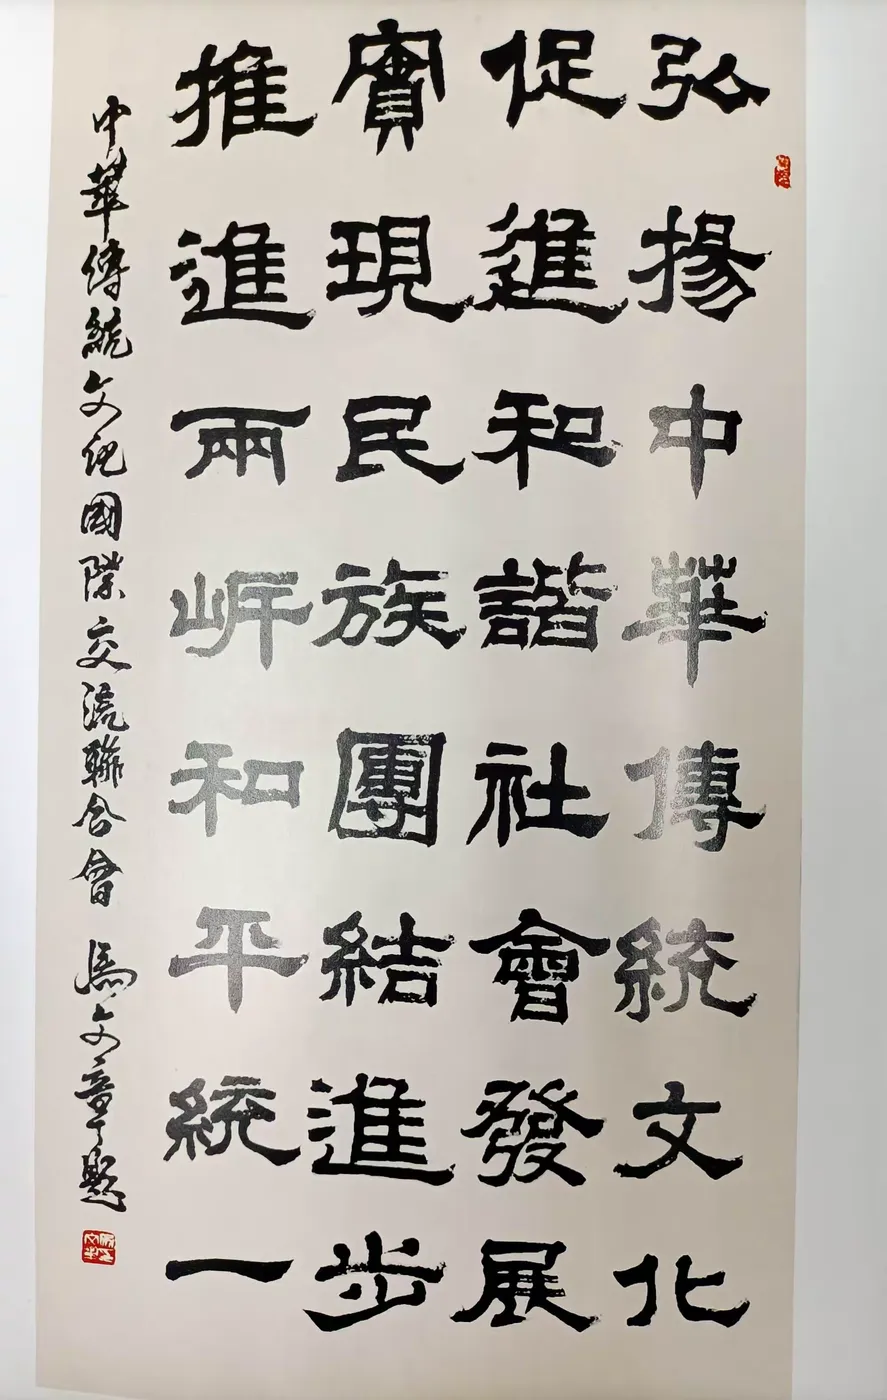 弘揚中華傳統文化
促進和諧社會發展
實現民族團結進步
推進兩岸和平統一
中華傳統文化國際交流聯合會 馮文章題